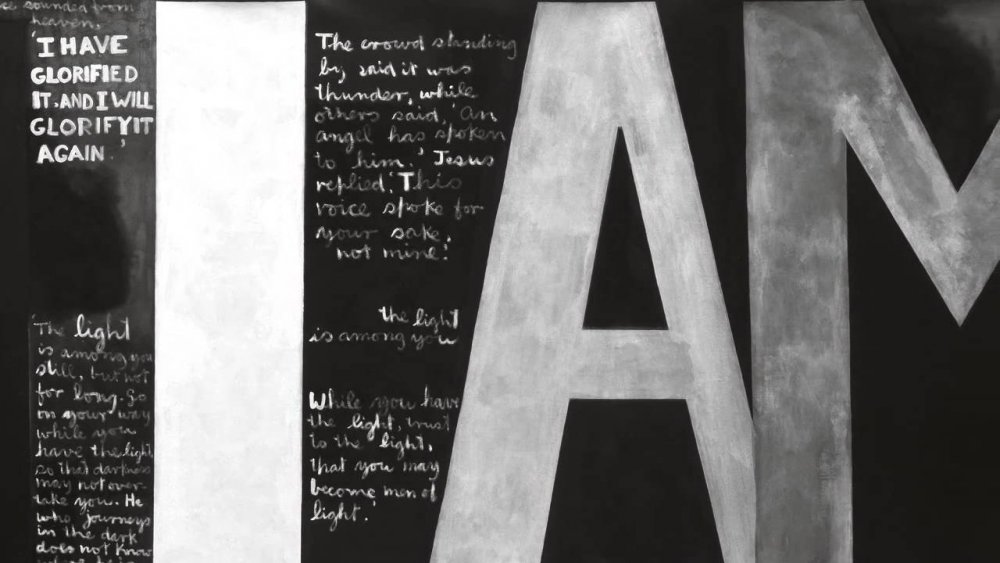 sounded from
heaven.
'I HAVE
GLORIFIED
IT. AND I WILL
GLORIFY IT
AGAIN.'
'The light
is among you
still, but not
for long. Go
on your way
while you
have the light,
so that darkness
may not over-
take you. He
who journeys
in the dark
does not know
The crowd standing
by said it was
thunder, while
others said, 'An
angel has spoken
to him.' Jesus
replied, 'This
voice spoke for
your sake,
not mine.'
the light
is among you
While you have
the light, trust
to the light,
that you may
become men of
light.'
I AM